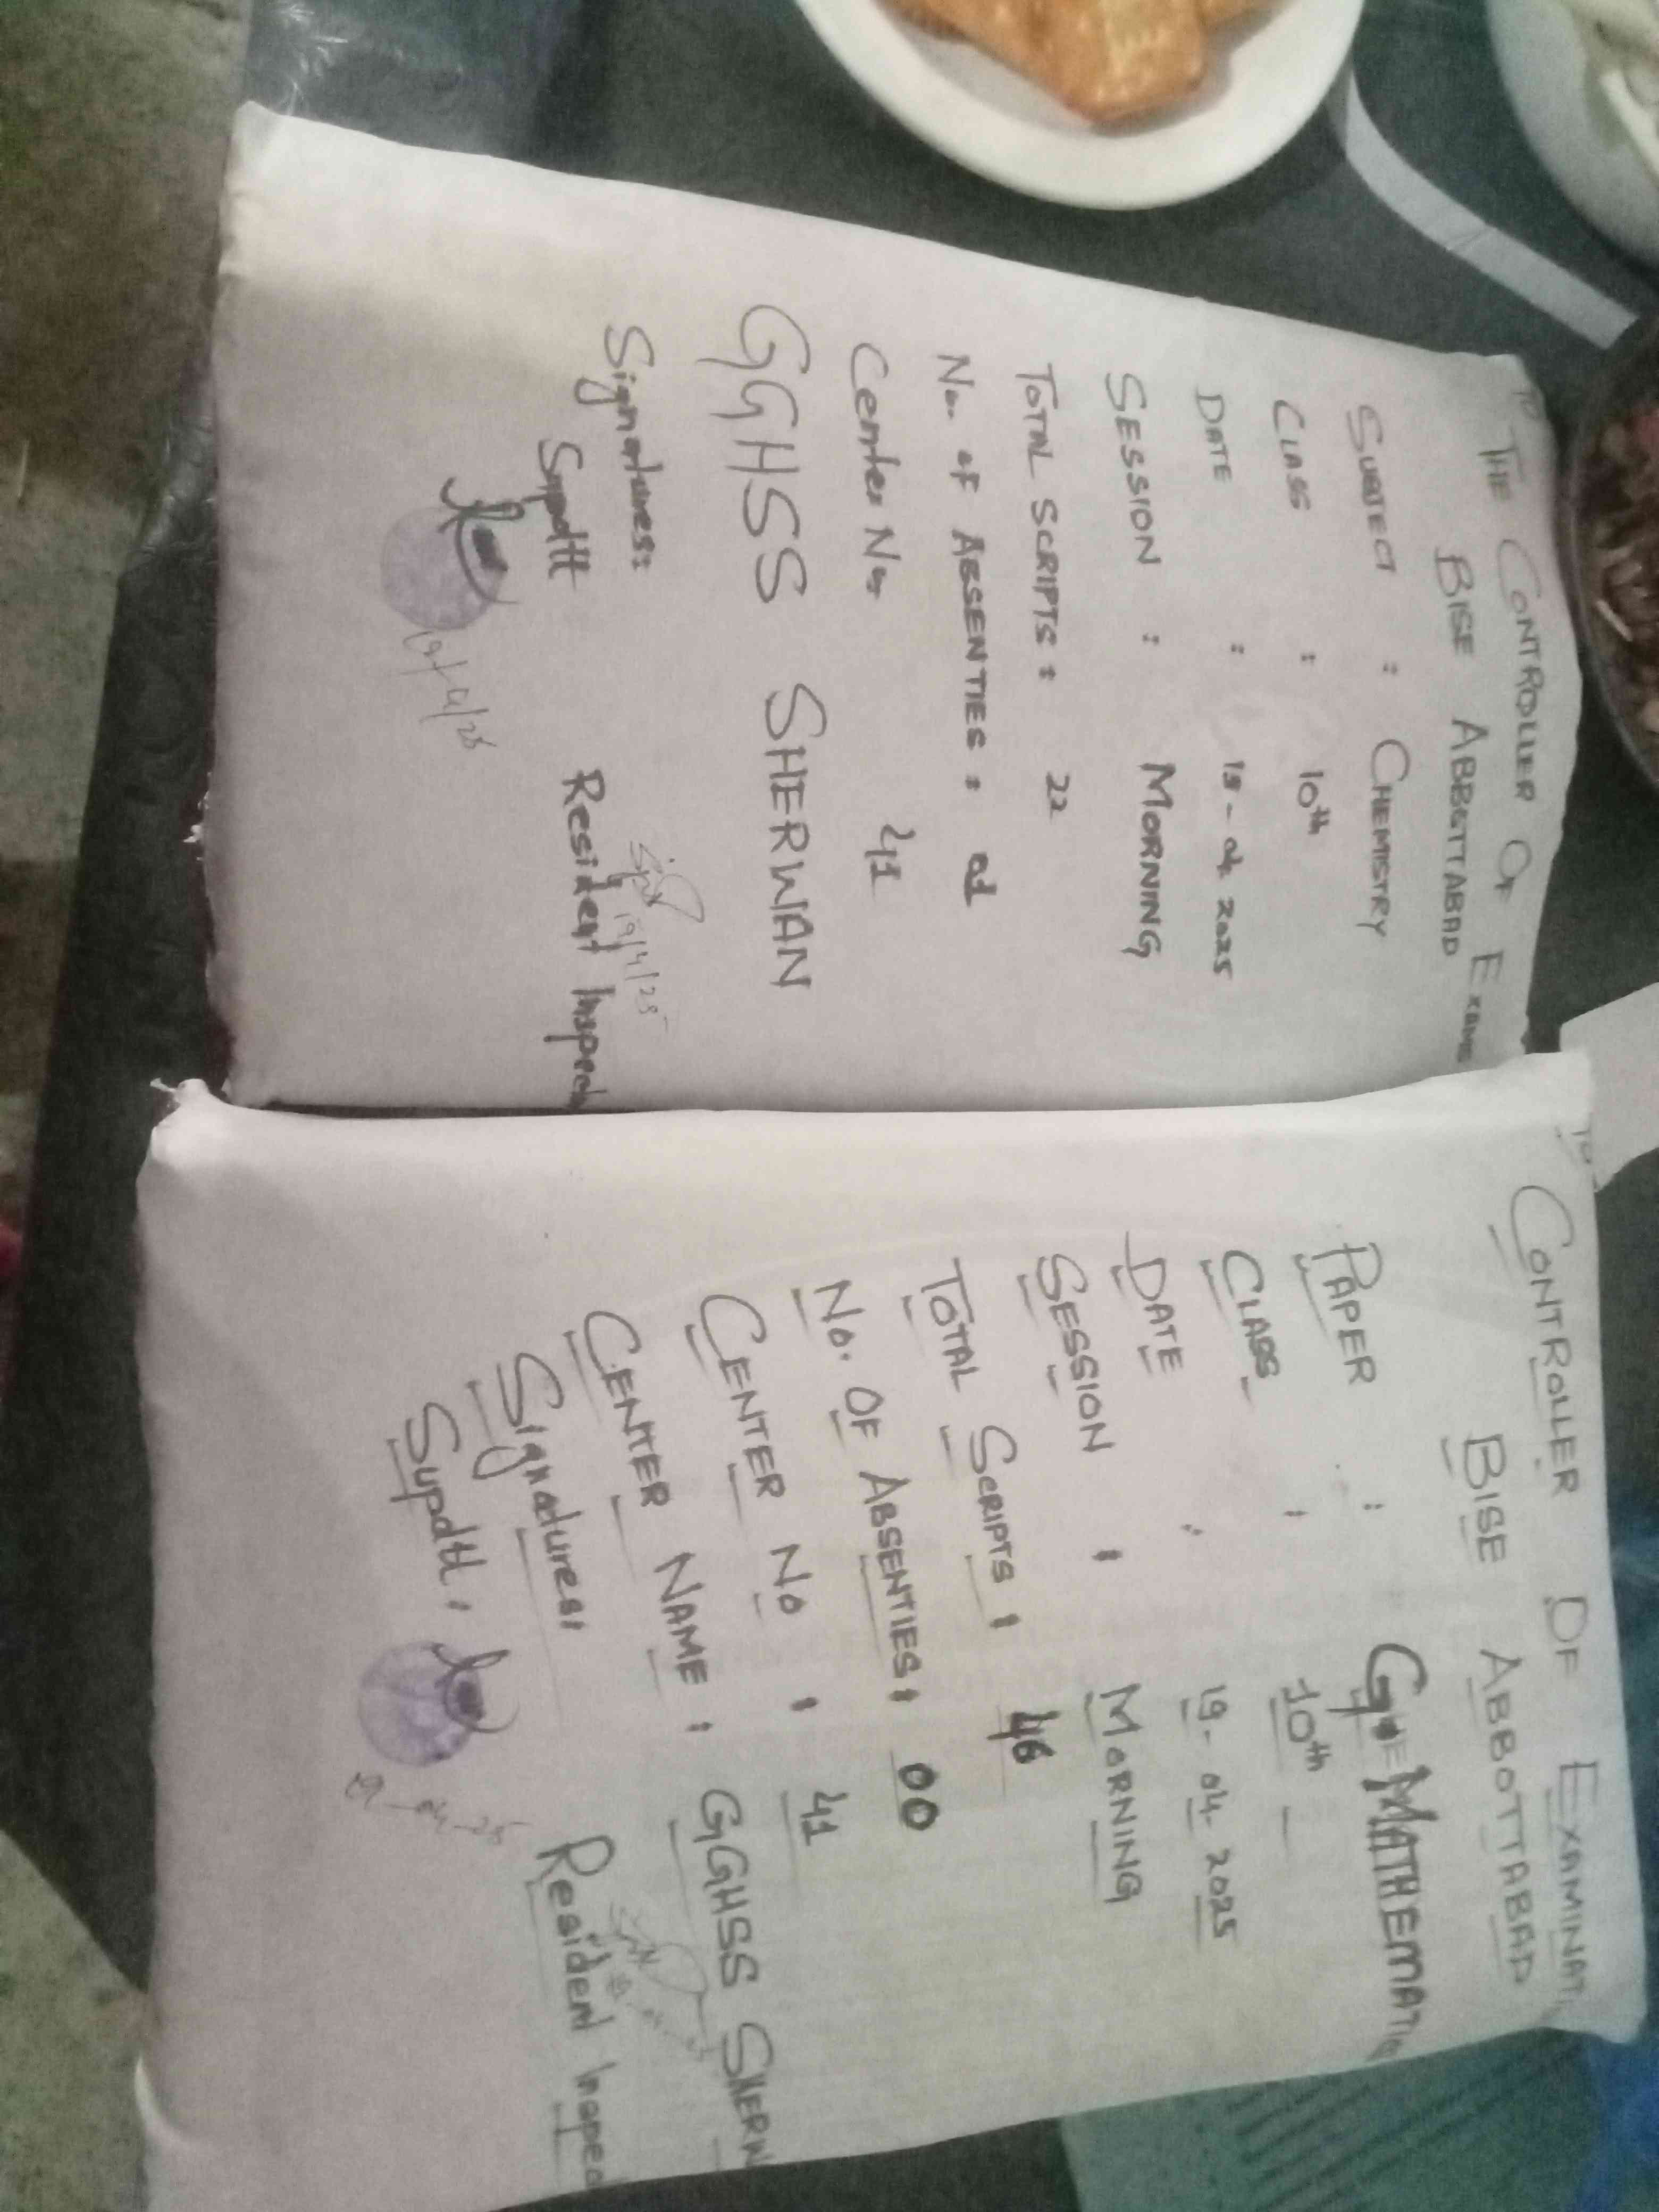 To
THE CONTROLLER OF EXAMS
BISE ABBOTTABAD
SUBJECT : CHEMISTRY
CLASS : 10th
DATE : 19-04-2025
SESSION : MORNING
TOTAL SCRIPTS : 22
No. of ABSENTIES : 01
Center No 41
GGHSS SHERWAN
Signatures:
Suppdtt Resident Inspec
19/4/25
19/4/25
To
CONTROLLER OF EXAMINATI
BISE ABBOTTABAD
PAPER : G. MATHEMATI
CLASS : 10th
DATE : 19-04-2025
SESSION : MORNING
TOTAL SCRIPTS : 46
No. OF ABSENTIES : 00
CENTER No : 41
CENTER NAME : GGHSS SHERW
Signatures:
Supdtt, Resident Inspec
19-04-25